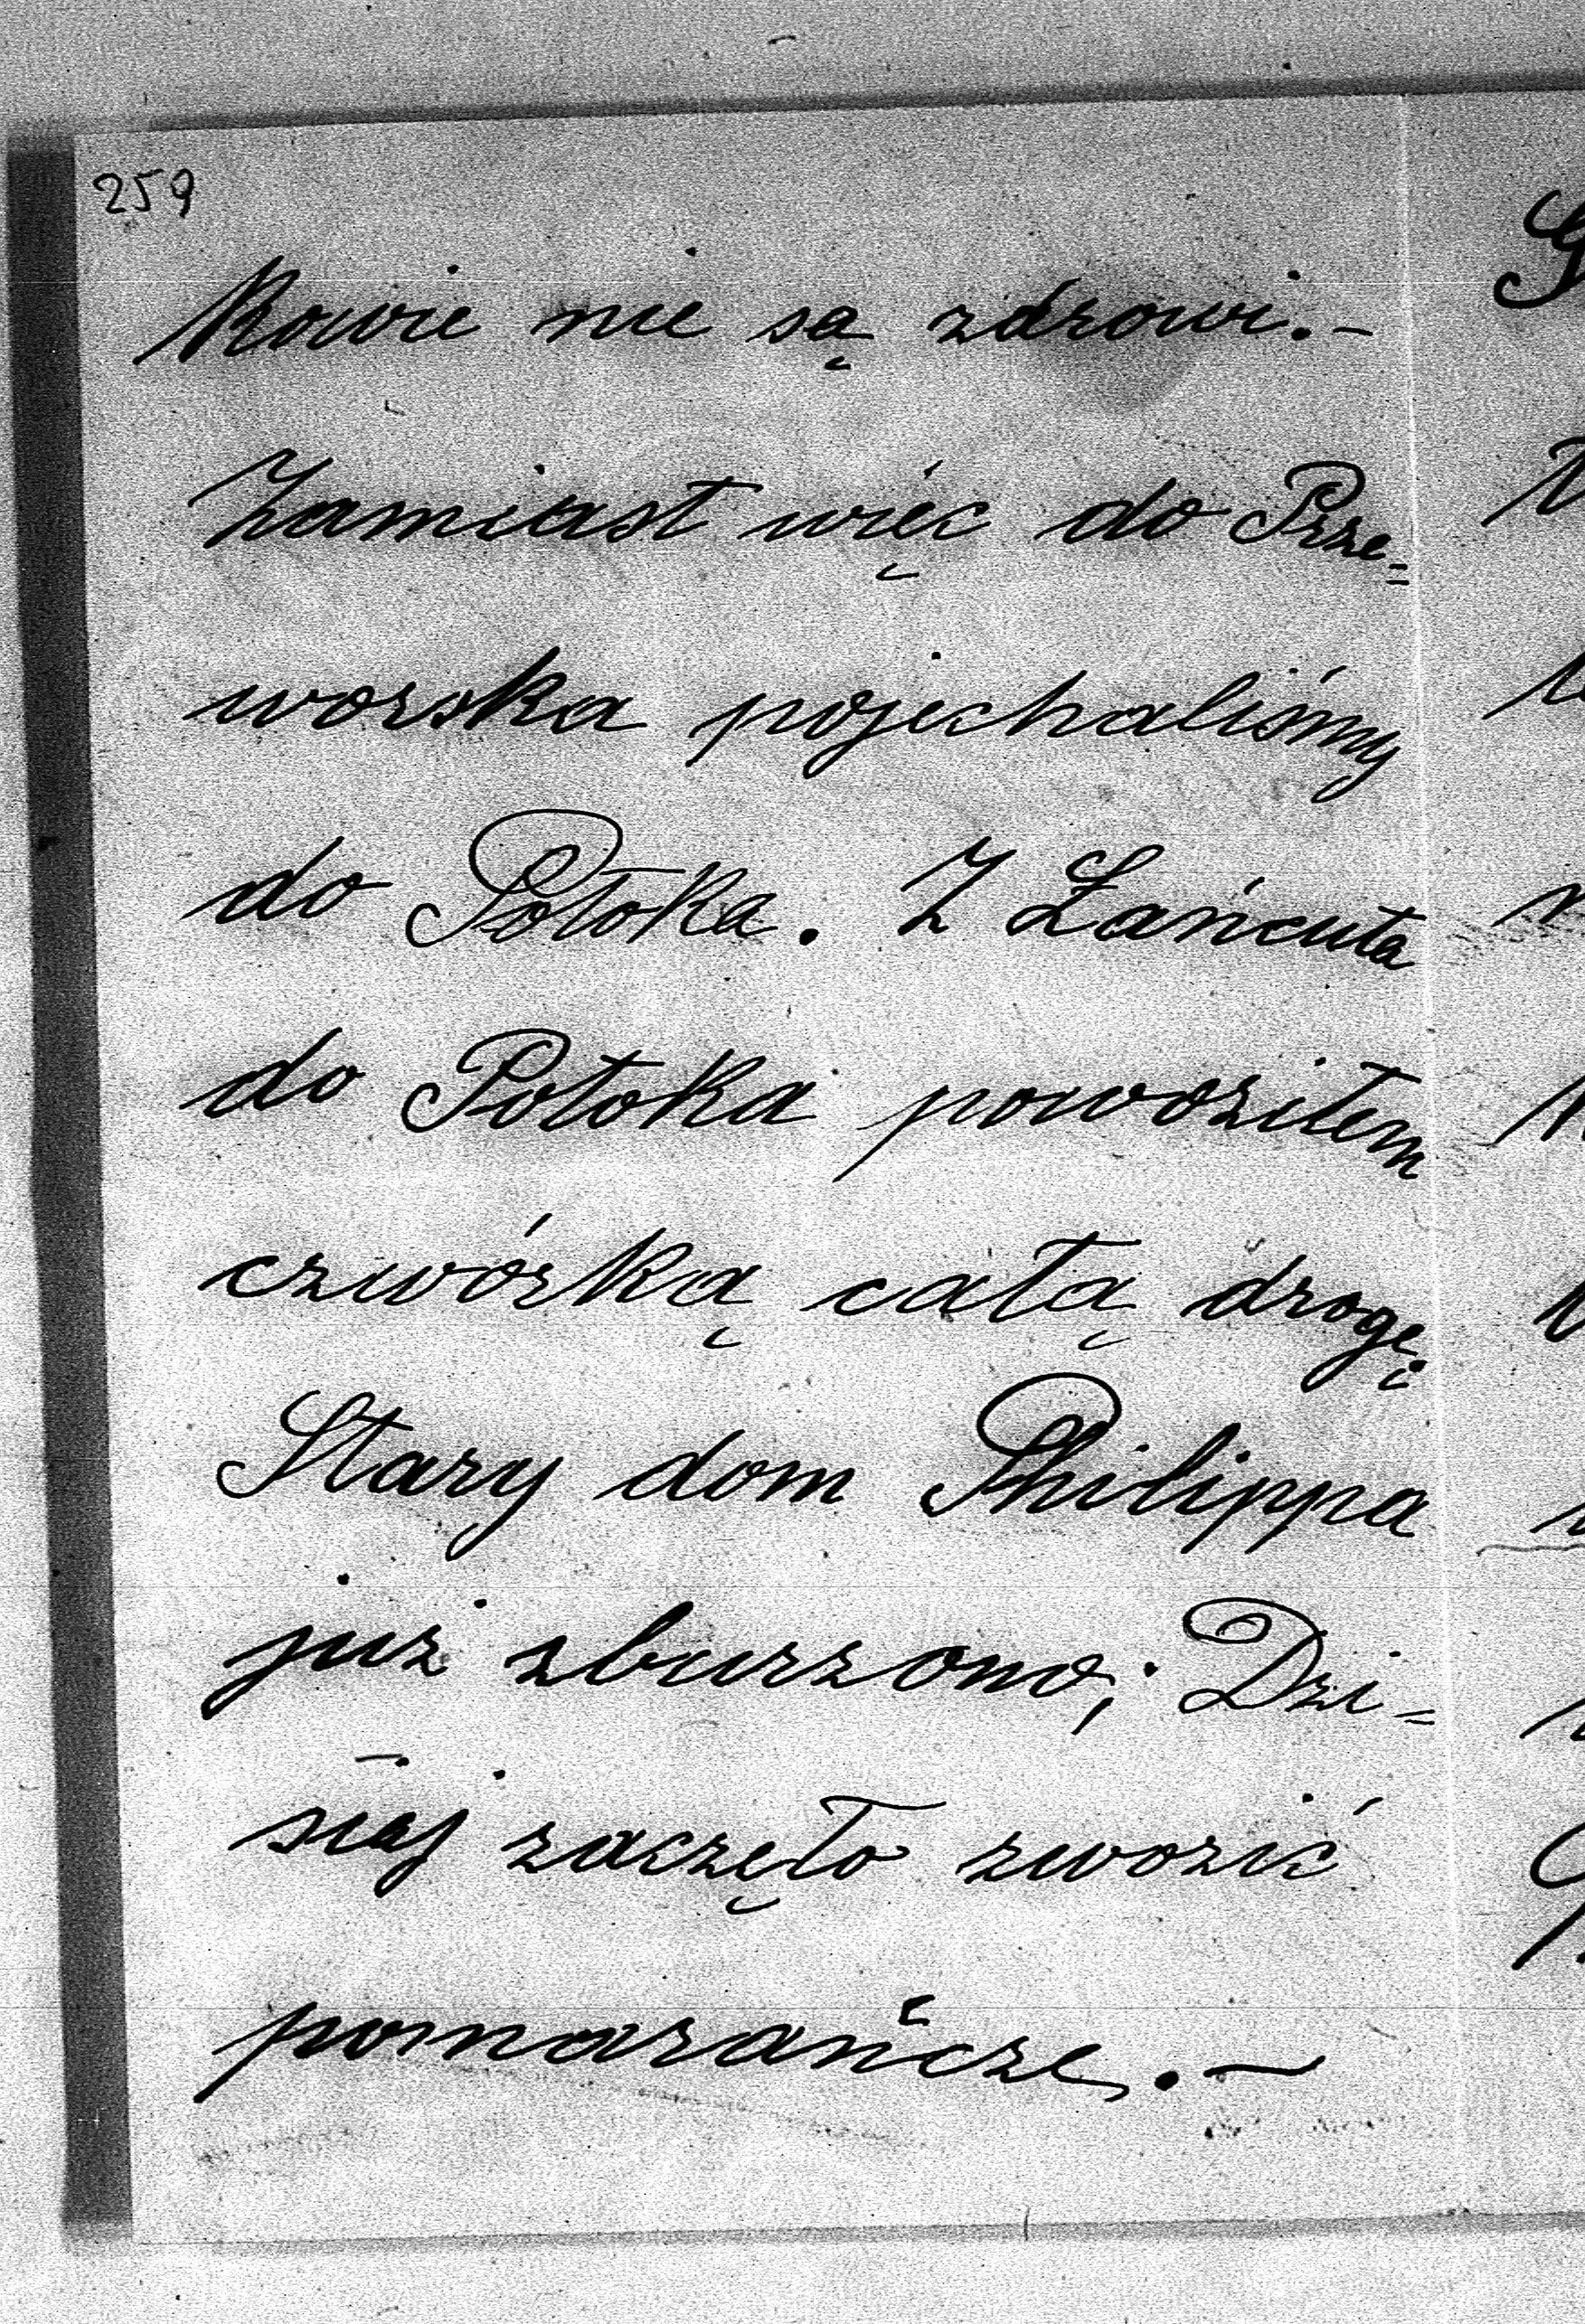 259
kowie nie są zdrowi.—
Zamiast więc do Prze=
worska pojechaliśmy
do Potoka. Z Łańcuta
do Potoka powoziłem
czwórką całą drogę.
Stary dom Philippa
już zburzono; Dzi=
siaj zaczęto zwozić
pomarańcze.—